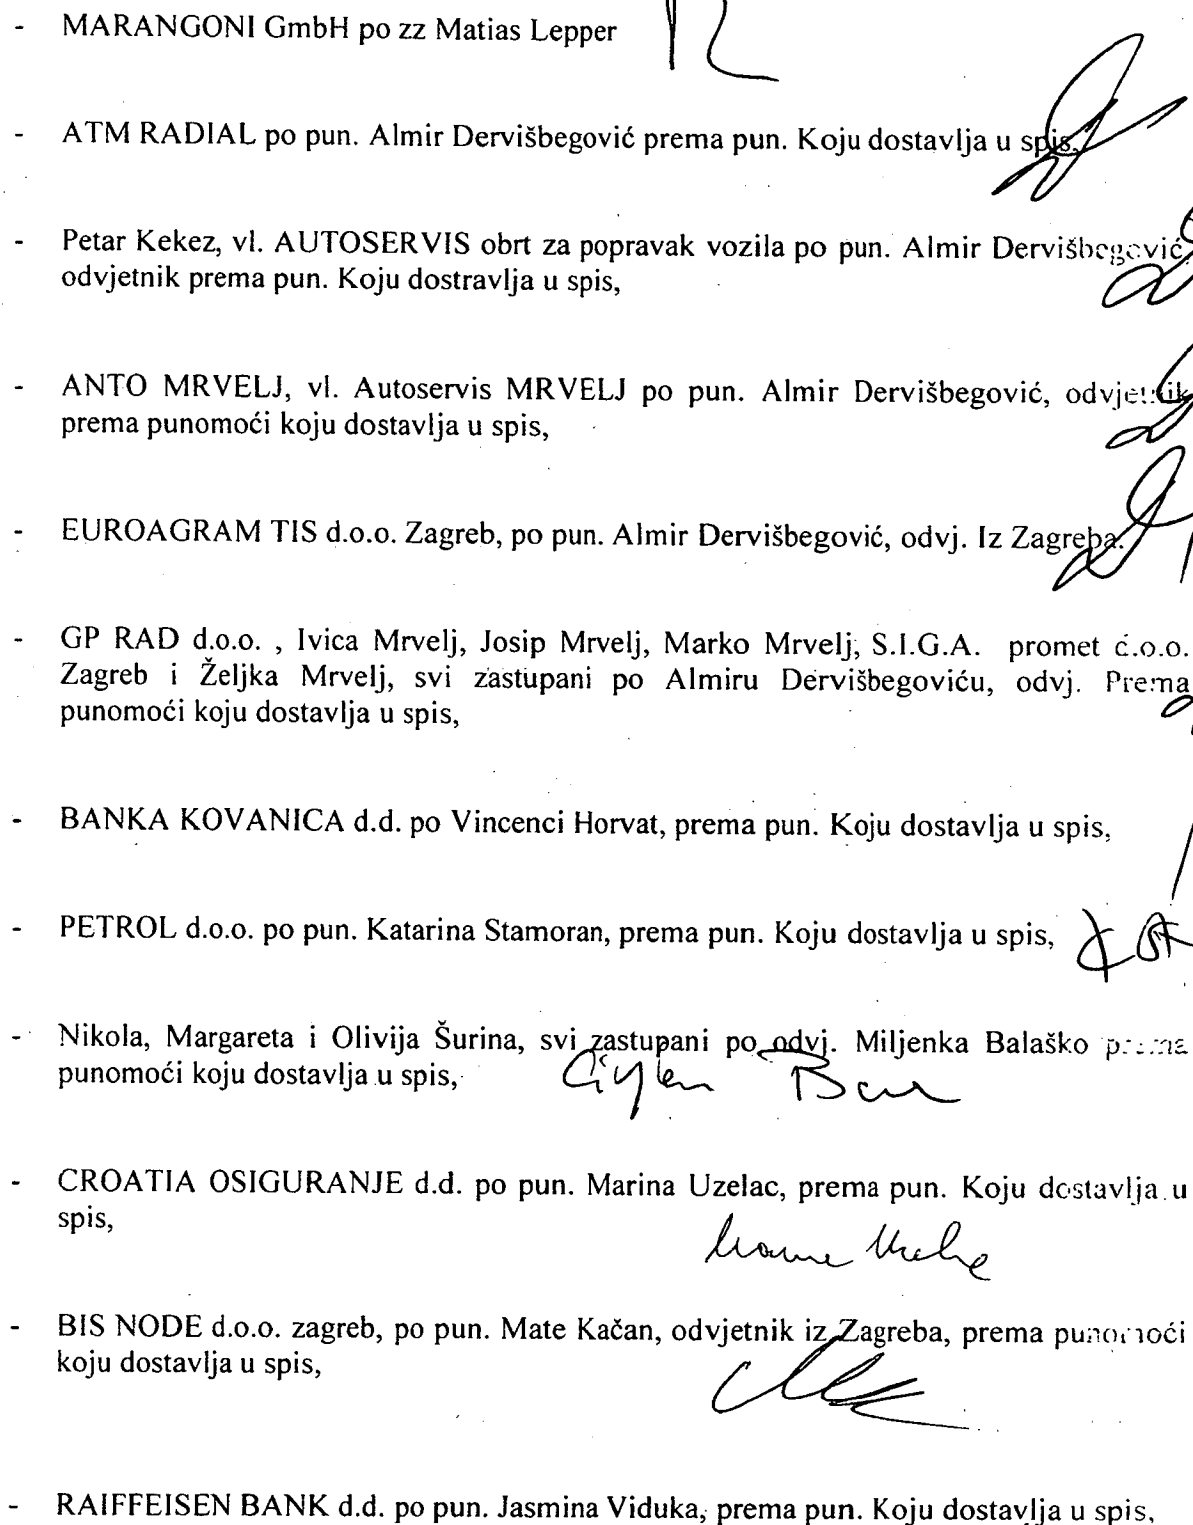 - MARANGONI GmbH po zz Matias Lepper
- ATM RADIAL po pun. Almir Dervišbegović prema pun. Koju dostavlja u spis,
- Petar Kekez, vl. AUTOSERVIS obrt za popravak vozila po pun. Almir Dervišbegović,
odvjetnik prema pun. Koju dostravlja u spis,
- ANTO MRVELJ, vl. Autoservis MRVELJ po pun. Almir Dervišbegović, odvjetnik
prema punomoći koju dostavlja u spis,
- EUROAGRAM TIS d.o.o. Zagreb, po pun. Almir Dervišbegović, odvj. Iz Zagreba.
- GP RAD d.o.o. , Ivica Mrvelj, Josip Mrvelj, Marko Mrvelj, S.I.G.A. promet d.o.o.
Zagreb i Željka Mrvelj, svi zastupani po Almiru Dervišbegoviću, odvj. Prema
punomoći koju dostavlja u spis,
- BANKA KOVANICA d.d. po Vincenci Horvat, prema pun. Koju dostavlja u spis,
- PETROL d.o.o. po pun. Katarina Stamoran, prema pun. Koju dostavlja u spis,
- Nikola, Margareta i Olivija Šurina, svi zastupani po odvj. Miljenka Balaško prema
punomoći koju dostavlja u spis,
- CROATIA OSIGURANJE d.d. po pun. Marina Uzelac, prema pun. Koju dostavlja u
spis,
- BIS NODE d.o.o. zagreb, po pun. Mate Kačan, odvjetnik iz Zagreba, prema punomoći
koju dostavlja u spis,
- RAIFFEISEN BANK d.d. po pun. Jasmina Viduka, prema pun. Koju dostavlja u spis,